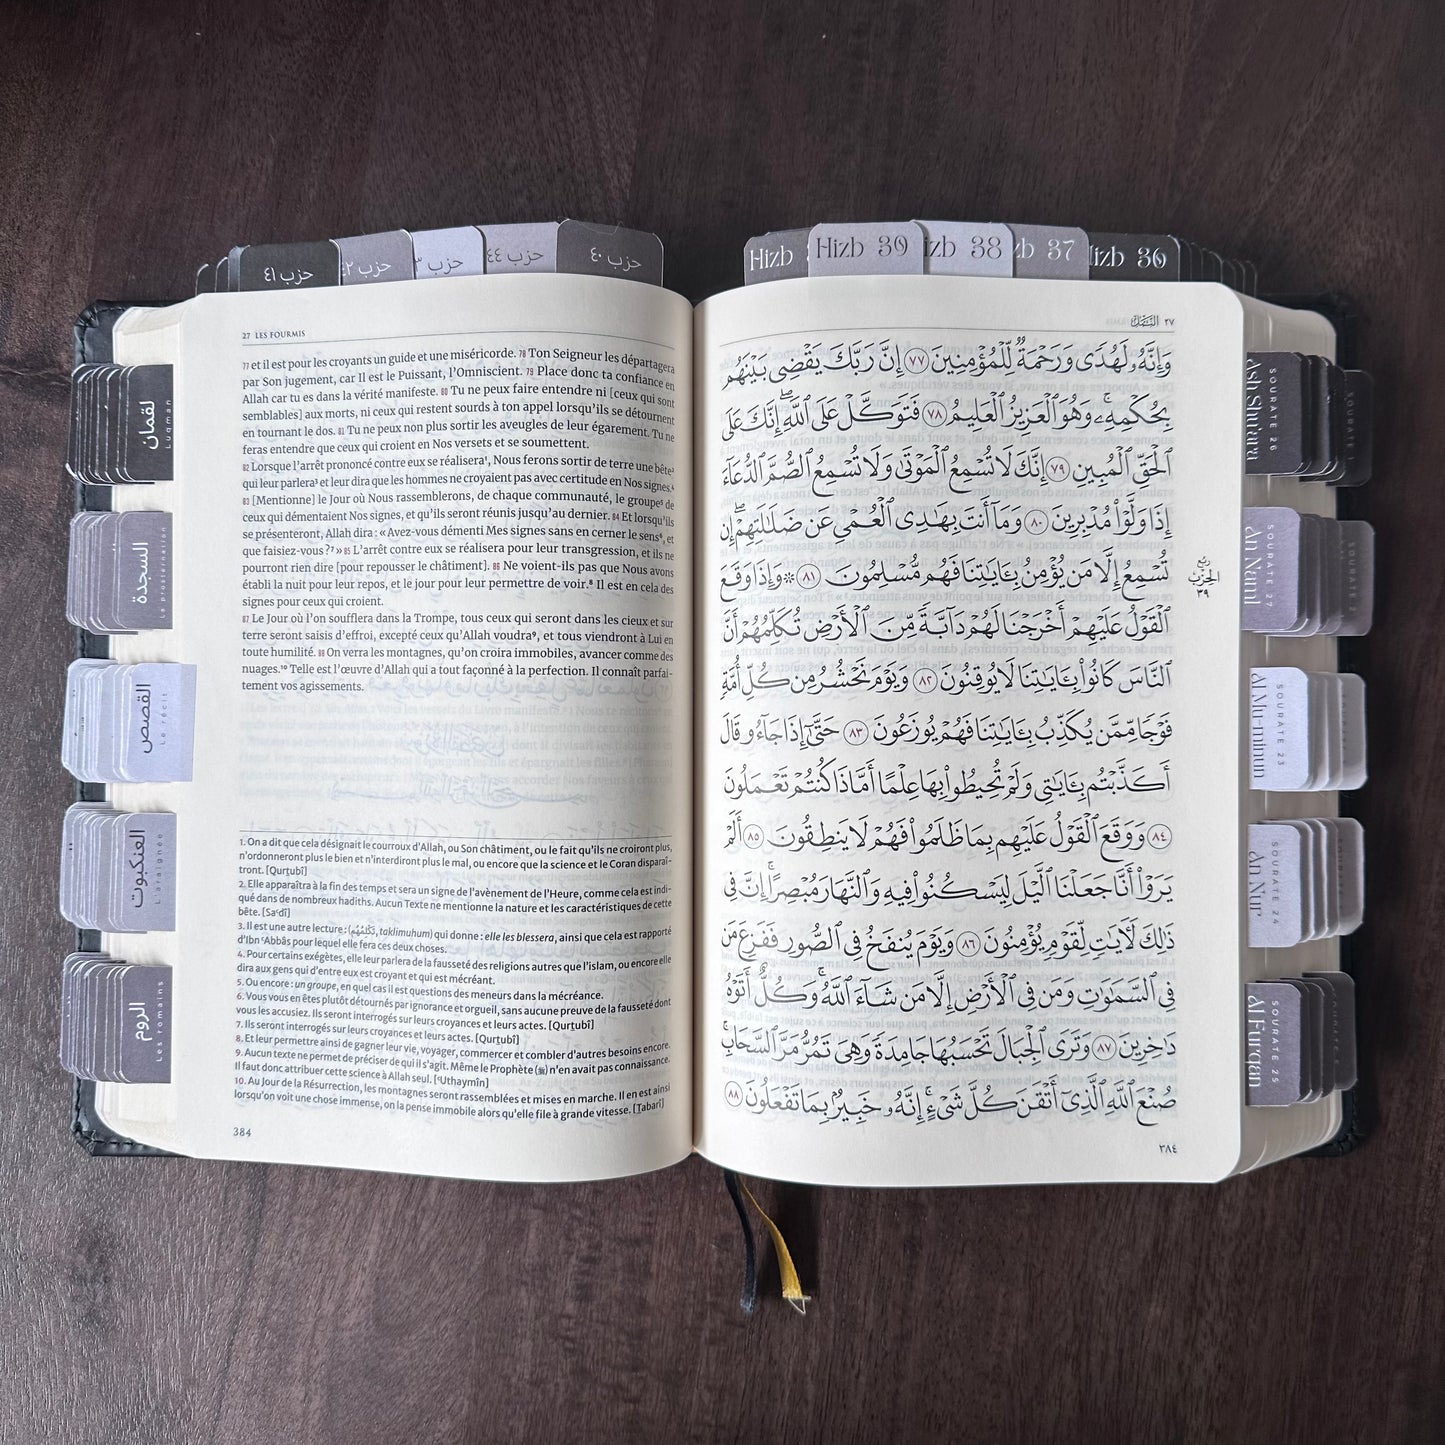 حزب ٤١
حزب
حزب
حزب ٤٤
حزب ٤٠
Hizb
Hizb 39
38
37
36
27 LES FOURMIS
77 et il est pour les croyants un guide et une miséricorde. 78 Ton Seigneur les départagera
par Son jugement, car Il est le Puissant, l’Omniscient. 79 Place donc ta confiance en
Allah car tu es dans la vérité manifeste. 80 Tu ne peux faire entendre ni [ceux qui sont
semblables] aux morts, ni ceux qui restent sourds à ton appel lorsqu’ils se détournent
en tournant le dos. 81 Tu ne peux non plus sortir les aveugles de leur égarement. Tu ne
feras entendre que ceux qui croient en Nos versets et se soumettent.
82 Lorsque l’arrêt prononcé contre eux se réalisera¹, Nous ferons sortir de terre une bête²
qui leur parlera³ et leur dira que les hommes ne croyaient pas avec certitude en Nos signes.⁴
83 [Mentionne] le Jour où Nous rassemblerons, de chaque communauté, le groupe⁵ de
ceux qui démentaient Nos signes, et qu’ils seront réunis jusqu’au dernier. 84 Et lorsqu’ils
se présenteront, Allah dira : « Avez-vous démenti Mes signes sans en cerner le sens⁶, et
que faisiez-vous ?⁷ » 85 L’arrêt contre eux se réalisera pour leur transgression, et ils ne
pourront rien dire [pour repousser le châtiment]. 86 Ne voient-ils pas que Nous avons
établi la nuit pour leur repos, et le jour pour leur permettre de voir.⁸ Il est en cela des
signes pour ceux qui croient.
87 Le Jour où l’on soufflera dans la Trompe, tous ceux qui seront dans les cieux et sur
terre seront saisis d’effroi, excepté ceux qu’Allah voudra⁹, et tous viendront à Lui en
toute humilité. 88 On verra les montagnes, qu’on croira immobiles, avancer comme des
nuages.¹⁰ Telle est l’œuvre d’Allah qui a tout façonné à la perfection. Il connaît parfai-
tement vos agissements.
1. On a dit que cela désignait le courroux d’Allah, ou Son châtiment, ou le fait qu’ils ne croiront plus,
n’ordonneront plus le bien et n’interdiront plus le mal, ou encore que la science et le Coran disparaî-
tront. [Qurṭubî]
2. Elle apparaîtra à la fin des temps et sera un signe de l’avènement de l’Heure, comme cela est indi-
qué dans de nombreux hadiths. Aucun Texte ne mentionne la nature et les caractéristiques de cette
bête. [Saʿdî]
3. Il est une autre lecture : (تَكْلِمُهُمْ, taklimuhum) qui donne : elle les blessera, ainsi que cela est rapporté
d’Ibn ʿAbbâs pour lequel elle fera ces deux choses.
4. Pour certains exégètes, elle leur parlera de la fausseté des religions autres que l’islam, ou encore elle
dira aux gens qui d’entre eux est croyant et qui est mécréant.
5. Ou encore : un groupe, en quel cas il est question des meneurs dans la mécréance.
6. Vous vous en êtes plutôt détournés par ignorance et orgueil, sans aucune preuve de la fausseté dont
vous les accusiez. Ils seront interrogés sur leurs croyances et leurs actes. [Qurṭubî]
7. Ils seront interrogés sur leurs croyances et leurs actes. [Qurṭubî]
8. Et leur permettre ainsi de gagner leur vie, voyager, commercer et combler d’autres besoins encore.
9. Aucun texte ne permet de préciser de qui il s’agit. Même le Prophète (ﷺ) n’en avait pas connaissance.
Il faut donc attribuer cette science à Allah seul. [ʿUthaymîn]
10. Au Jour de la Résurrection, les montagnes seront rassemblées et mises en marche. Il en est ainsi
lorsqu’on voit une chose immense, on la pense immobile alors qu’elle file à grande vitesse. [Ṭabarî]
384
٢٧ النَّمْل
وَإِنَّهُۥ لَهُدًى وَرَحْمَةٌ لِّلْمُؤْمِنِينَ ٧٧ إِنَّ رَبَّكَ يَقْضِى بَيْنَهُم
بِحُكْمِهِۦۚ وَهُوَ ٱلْعَزِيزُ ٱلْعَلِيمُ ٧٨ فَتَوَكَّلْ عَلَى ٱللَّهِۖ إِنَّكَ عَلَى
ٱلْحَقِّ ٱلْمُبِينِ ٧٩ إِنَّكَ لَا تُسْمِعُ ٱلْمَوْتَىٰ وَلَا تُسْمِعُ ٱلصُّمَّ ٱلدُّعَآءَ
إِذَا وَلَّوْا۟ مُدْبِرِينَ ٨٠ وَمَآ أَنتَ بِهَـٰدِى ٱلْعُمْىِ عَن ضَلَـٰلَتِهِمْۖ إِن
تُسْمِعُ إِلَّا مَن يُؤْمِنُ بِـَٔايَـٰتِنَا فَهُم مُّسْلِمُونَ ٨١ ۞ وَإِذَا وَقَعَ
ٱلْقَوْلُ عَلَيْهِمْ أَخْرَجْنَا لَهُمْ دَآبَّةً مِّنَ ٱلْأَرْضِ تُكَلِّمُهُمْ أَنَّ
ٱلنَّاسَ كَانُوا۟ بِـَٔايَـٰتِنَا لَا يُوقِنُونَ ٨٢ وَيَوْمَ نَحْشُرُ مِن كُلِّ أُمَّةٍ
فَوْجًا مِّمَّن يُكَذِّبُ بِـَٔايَـٰتِنَا فَهُمْ يُوزَعُونَ ٨٣ حَتَّىٰٓ إِذَا جَآءُو قَالَ
أَكَذَّبْتُم بِـَٔايَـٰتِى وَلَمْ تُحِيطُوا۟ بِهَا عِلْمًا أَمَّاذَا كُنتُمْ تَعْمَلُونَ
٨٤ وَوَقَعَ ٱلْقَوْلُ عَلَيْهِم بِمَا ظَلَمُوا۟ فَهُمْ لَا يَنطِقُونَ ٨٥ أَلَمْ
يَرَوْا۟ أَنَّا جَعَلْنَا ٱلَّيْلَ لِيَسْكُنُوا۟ فِيهِ وَٱلنَّهَارَ مُبْصِرًاۚ إِنَّ فِى
ذَٰلِكَ لَـَٔايَـٰتٍ لِّقَوْمٍ يُؤْمِنُونَ ٨٦ وَيَوْمَ يُنفَخُ فِى ٱلصُّورِ فَفَزِعَ مَن
فِى ٱلسَّمَـٰوَٰتِ وَمَن فِى ٱلْأَرْضِ إِلَّا مَن شَآءَ ٱللَّهُۚ وَكُلٌّ أَتَوْهُ
دَٰخِرِينَ ٨٧ وَتَرَى ٱلْجِبَالَ تَحْسَبُهَا جَامِدَةً وَهِىَ تَمُرُّ مَرَّ ٱلسَّحَابِۚ
صُنْعَ ٱللَّهِ ٱلَّذِىٓ أَتْقَنَ كُلَّ شَىْءٍۚ إِنَّهُۥ خَبِيرٌۢ بِمَا تَفْعَلُونَ ٨٨
٣٨٤
ربع
الحزب
٣٩
لقمان
Luqman
السجدة
La prosternation
القصص
Le récit
العنكبوت
L'araignée
الروم
Les romains
SOURATE 26
Ash Shuara
SOURATE 27
An Naml
SOURATE 23
Al Mu-minun
SOURATE 24
An Nur
SOURATE 25
Al Furqan